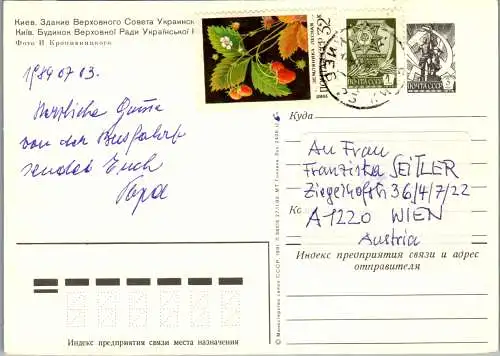 Киев. Здание Верховного Совета Украинск
Київ. Будинок Верховної Ради Української
Фото И. Кропивницкого
1984 07 03.
Herzliche Grüße
von der Busfahrt
sendet Euch
Papa
ЗЕМЛЯНИКА ЛЕСНАЯ
ПОЧТА СССР
ПОЧТА СССР
КИЕВ
Куда
An Frau
Franziska SEITLER
Ziegelhofstr 36/4/7/22
A1220 WIEN
Austria
Индекс предприятия связи и адрес
отправителя
Индекс предприятия связи места назначения
© Министерство связи СССР, 1981